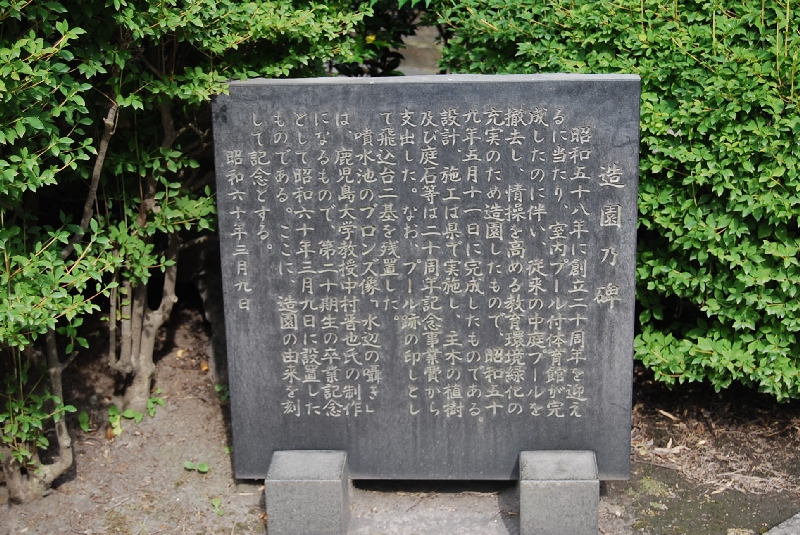 造園乃碑
昭和五十八年に創立二十周年を迎え
るに当たり、室内プール付体育館が完
成したのに伴い、従来の中庭プールを
撤去し、情操を高める教育環境緑化の
充実のため造園したもので、昭和五十
九年五月十一日に完成したものである。
設計、施工は県で実施し、主木の植樹
及び庭石等は二十周年記念事業費から
支出した。なお、プール跡の印しとし
て飛込台二基を残置した。
噴水池のブロンズ像「水辺の囁き」
は、鹿児島大学教授中村晋也氏の制作
になるもので、第二十期生の卒業記念
として昭和六十年三月九日に設置した
ものである。ここに、造園の由来を刻
して記念とする。
昭和六十年三月九日